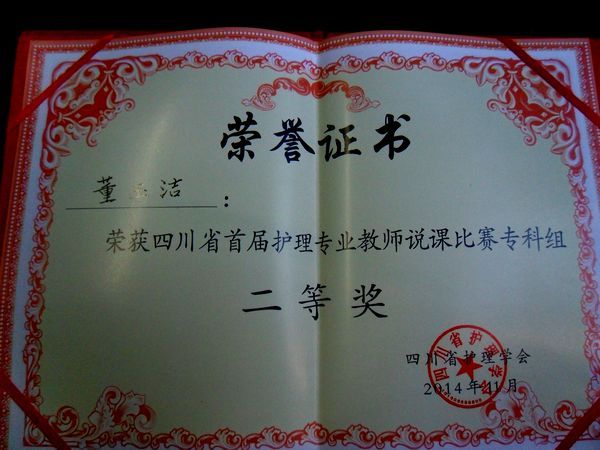 荣誉证书
董玉洁：
荣获四川省首届护理专业教师说课比赛专科组
二等奖
四川省护理学会
2014年11月
四川省护理学会